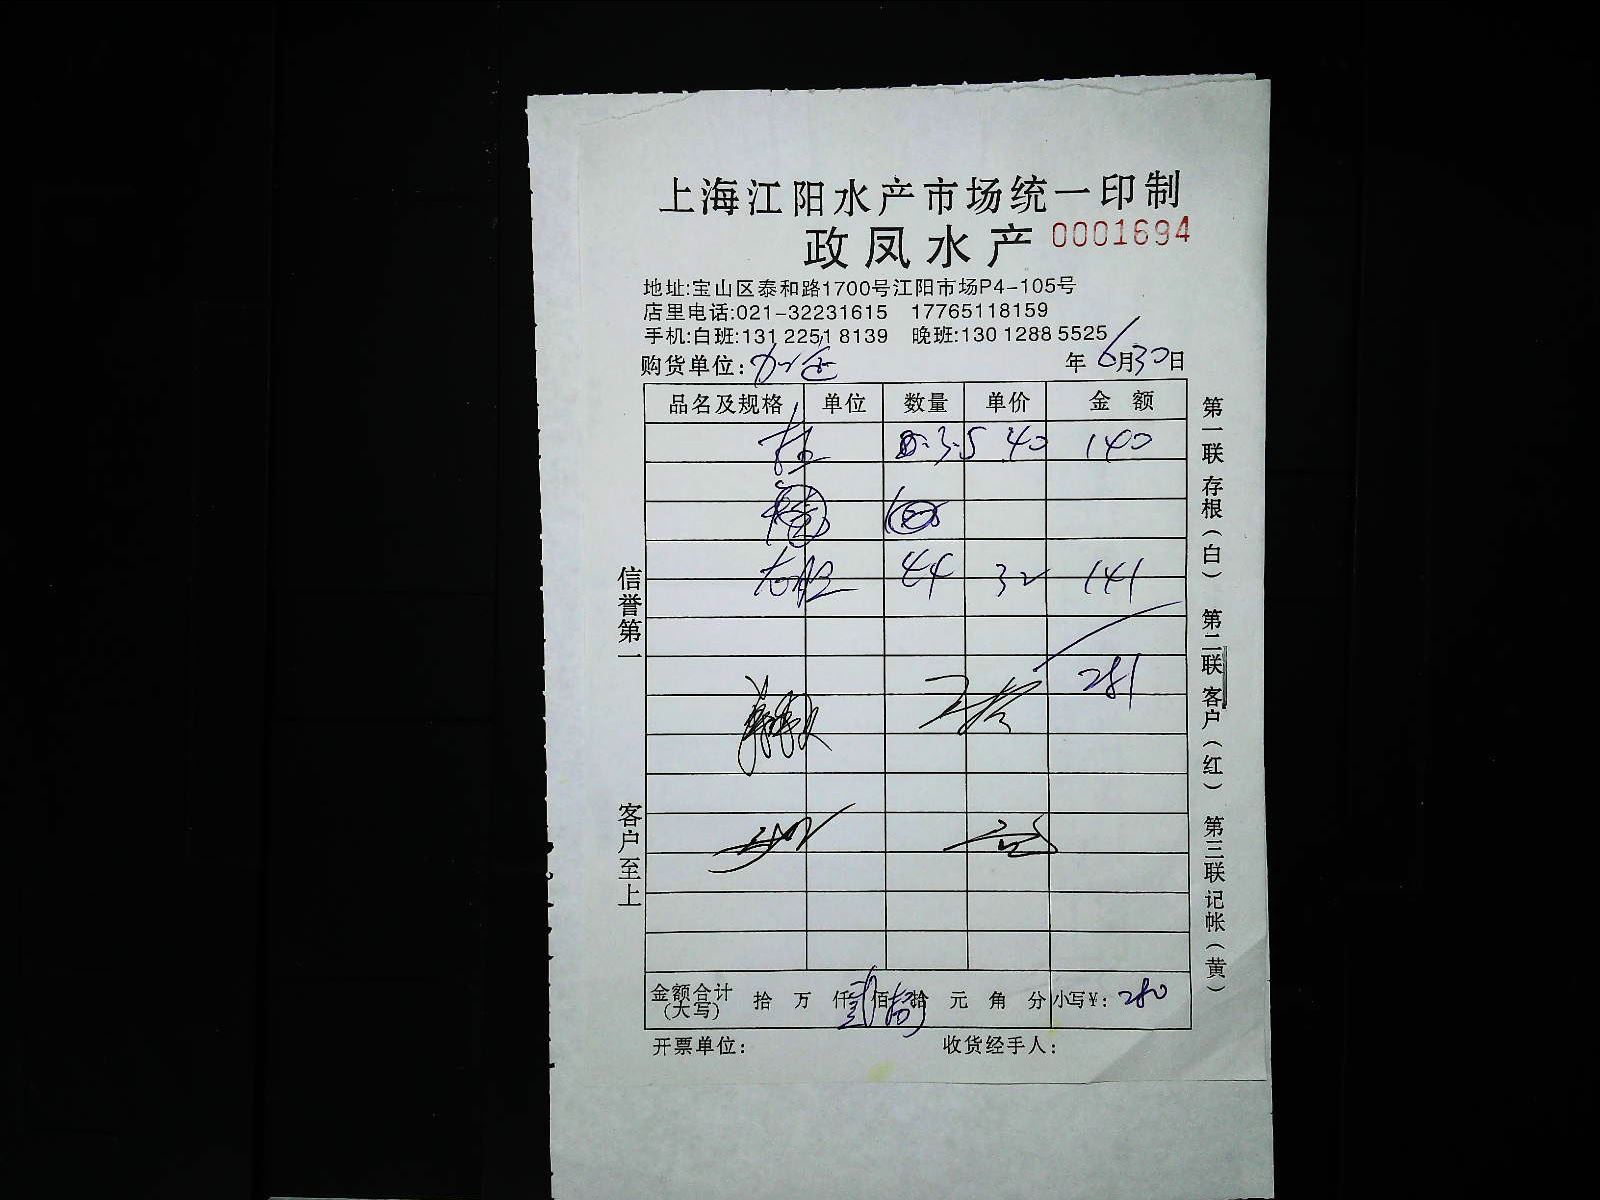 上海江阳水产市场统一印制
政凤水产 0001694
地址:宝山区泰和路1700号江阳市场P4-105号
店里电话:021-32231615 17765118159
手机:白班:131 2251 8139 晚班:130 1288 5525
购货单位: 年6月30日
品名及规格 单位 数量 单价 金额
3.5 40 140
44 32 141
281
金额合计(大写) 拾 万 仟 贰佰 捌拾 元 角 分 小写¥: 280
开票单位: 收货经手人:
信誉第一
客户至上
第一联存根(白) 第二联客户(红) 第三联记帐(黄)